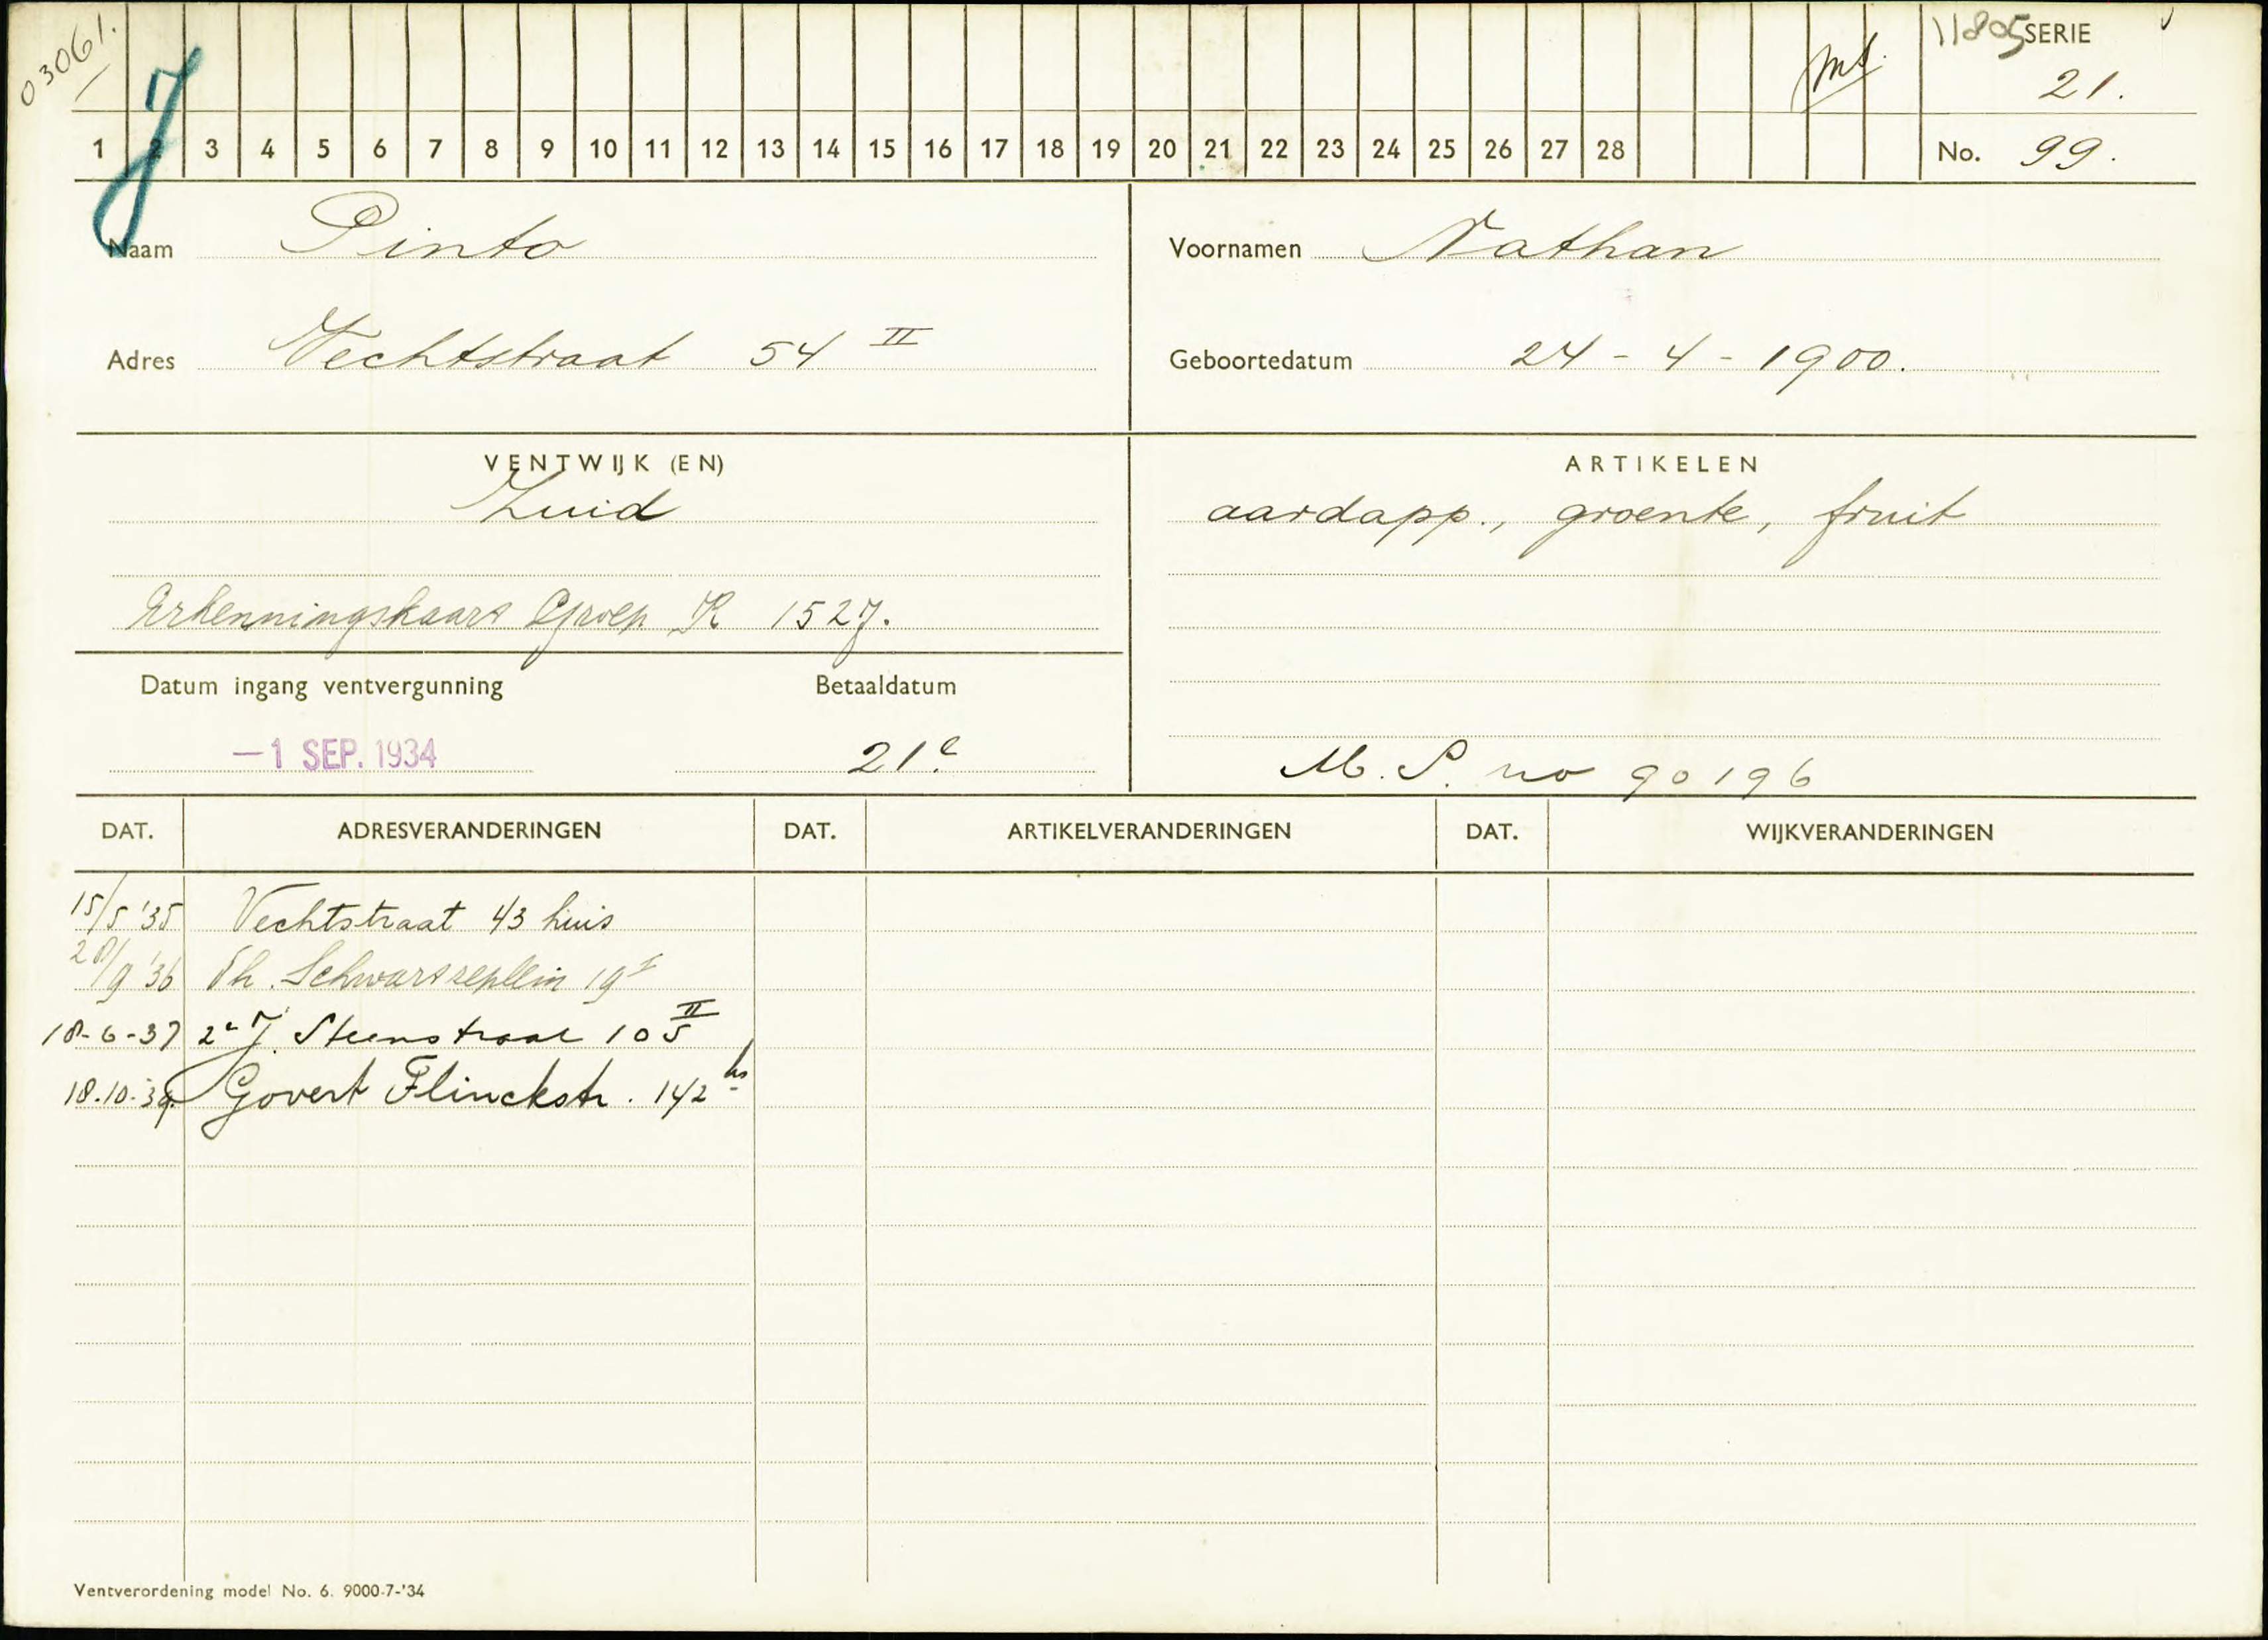 03061.
J
11805 SERIE
21.
1 2 3 4 5 6 7 8 9 10 11 12 13 14 15 16 17 18 19 20 21 22 23 24 25 26 27 28
No. 99.
Naam Pinto
Voornamen Nathan
Adres Vechtstraat 54 II
Geboortedatum 24 - 4 - 1900.
VENTWIJK (EN)
ARTIKELEN
Zuid
aardapp., groente, fruit
Erkenningskaart Groep K 1527.
Datum ingang ventvergunning Betaaldatum
-1 SEP. 1934 21e
M. S. no 90196
DAT. ADRESVERANDERINGEN DAT. ARTIKELVERANDERINGEN DAT. WIJKVERANDERINGEN
15/5 '35 Vechtstraat 43 huis
28/9 '36 Th. Schwartzeplein 19 I
18-6-37 2e J. Steenstraat 105 II
18.10.39. Govert Flinckstr. 142 hs
Ventverordening model No. 6. 9000-7-'34